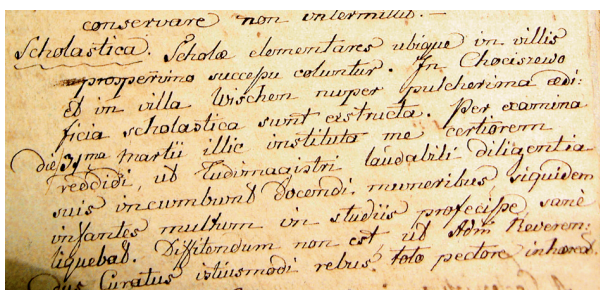 conservare non intermittit. —
Scholastica. Scholæ elementares ubique in villis
prosperrimo successu coluntur. In Chociszewo
et in villa Wischen nuper pulcherima ædi:
ficia scholastica sunt exstructa. Per examina
die 31ma Martii illic instituta me certiorem
reddidi, ut Ludimagistri laudabili diligentia
suis incumbunt docendi muneribus siquidem
infantes multum in studiis profecisse sanè
liquebat. Diffitendum non est, ut Adm Reveren:
dus Curatus istiusmodi rebus toto pectore inhæreat